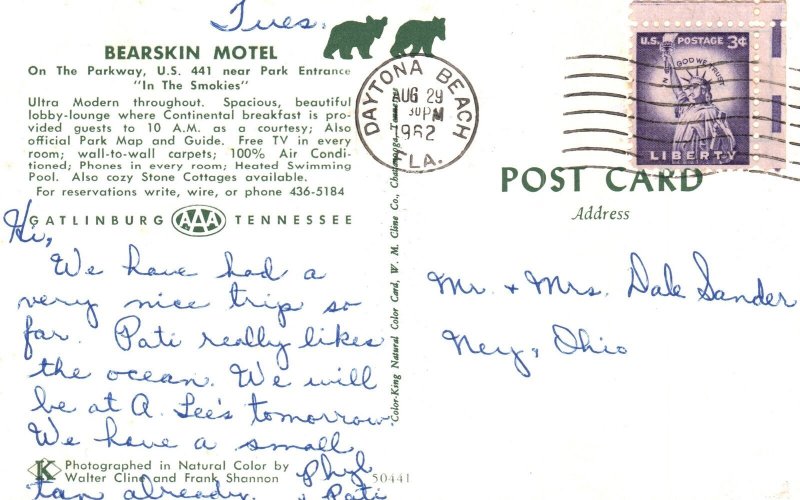 Tues.
BEARSKIN MOTEL
On The Parkway, U.S. 441 near Park Entrance
"In The Smokies"
Ultra Modern throughout. Spacious, beautiful
lobby-lounge where Continental breakfast is pro-
vided guests to 10 A.M. as a courtesy; Also
official Park Map and Guide. Free TV in every
room; wall-to-wall carpets; 100% Air Condi-
tioned; Phones in every room; Heated Swimming
Pool. Also cozy Stone Cottages available.
For reservations write, wire, or phone 436-5184
GATLINBURG AAA TENNESSEE
Hi,
We have had a
very nice trip so
far. Pati really likes
the ocean. We will
be at A. Lee's tomorrow.
We have a small
tan already.
Phyl
+ Pati
K
Photographed in Natural Color by
Walter Cline and Frank Shannon
50441
Color-King Natural Color Card, W. M. Cline Co., Chattanooga, Tennessee
DAYTONA BEACH
AUG 29
30 PM
1962
FLA.
U.S. POSTAGE 3¢
IN GOD WE TRUST
LIBERTY
POST CARD
Address
Mr. + Mrs. Dale Sander
Ney, Ohio